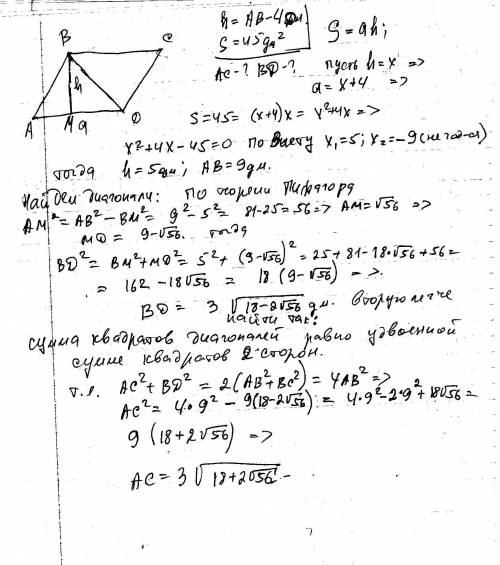 h = AB - 4дм
S = 45 дм²
AC - ? BD - ?
S = ah;
пусть h = x =>
a = x+4 =>
B C
h
A M a D
S = 45 = (x+4)x = x²+4x =>
x²+4x-45=0 по Виету x₁=5; x₂=-9 (не год-ся)
тогда h = 5дм; AB = 9дм.
Найдем диагонали: По теореме Пифагора
AM² = AB² - BM² = 9² - 5² = 81-25 = 56 => AM = √56 =>
MD = 9-√56. тогда
BD² = BM² + MD² = 5² + (9-√56)² = 25 + 81 - 18·√56 + 56 =
= 162 - 18√56 = 18 (9-√56) =>.
BD = 3 √18-2√56 дм. вторую легче
найти так:
сумма квадратов диагоналей равно удвоенной
сумме квадратов 2 сторон.
т.е. AC² + BD² = 2(AB² + BC²) = 4AB² =>
AC² = 4·9² - 9(18-2√56) = 4·9² - 2·9² + 18√56 =
9 (18+2√56) =>
AC = 3 √18+2√56 -